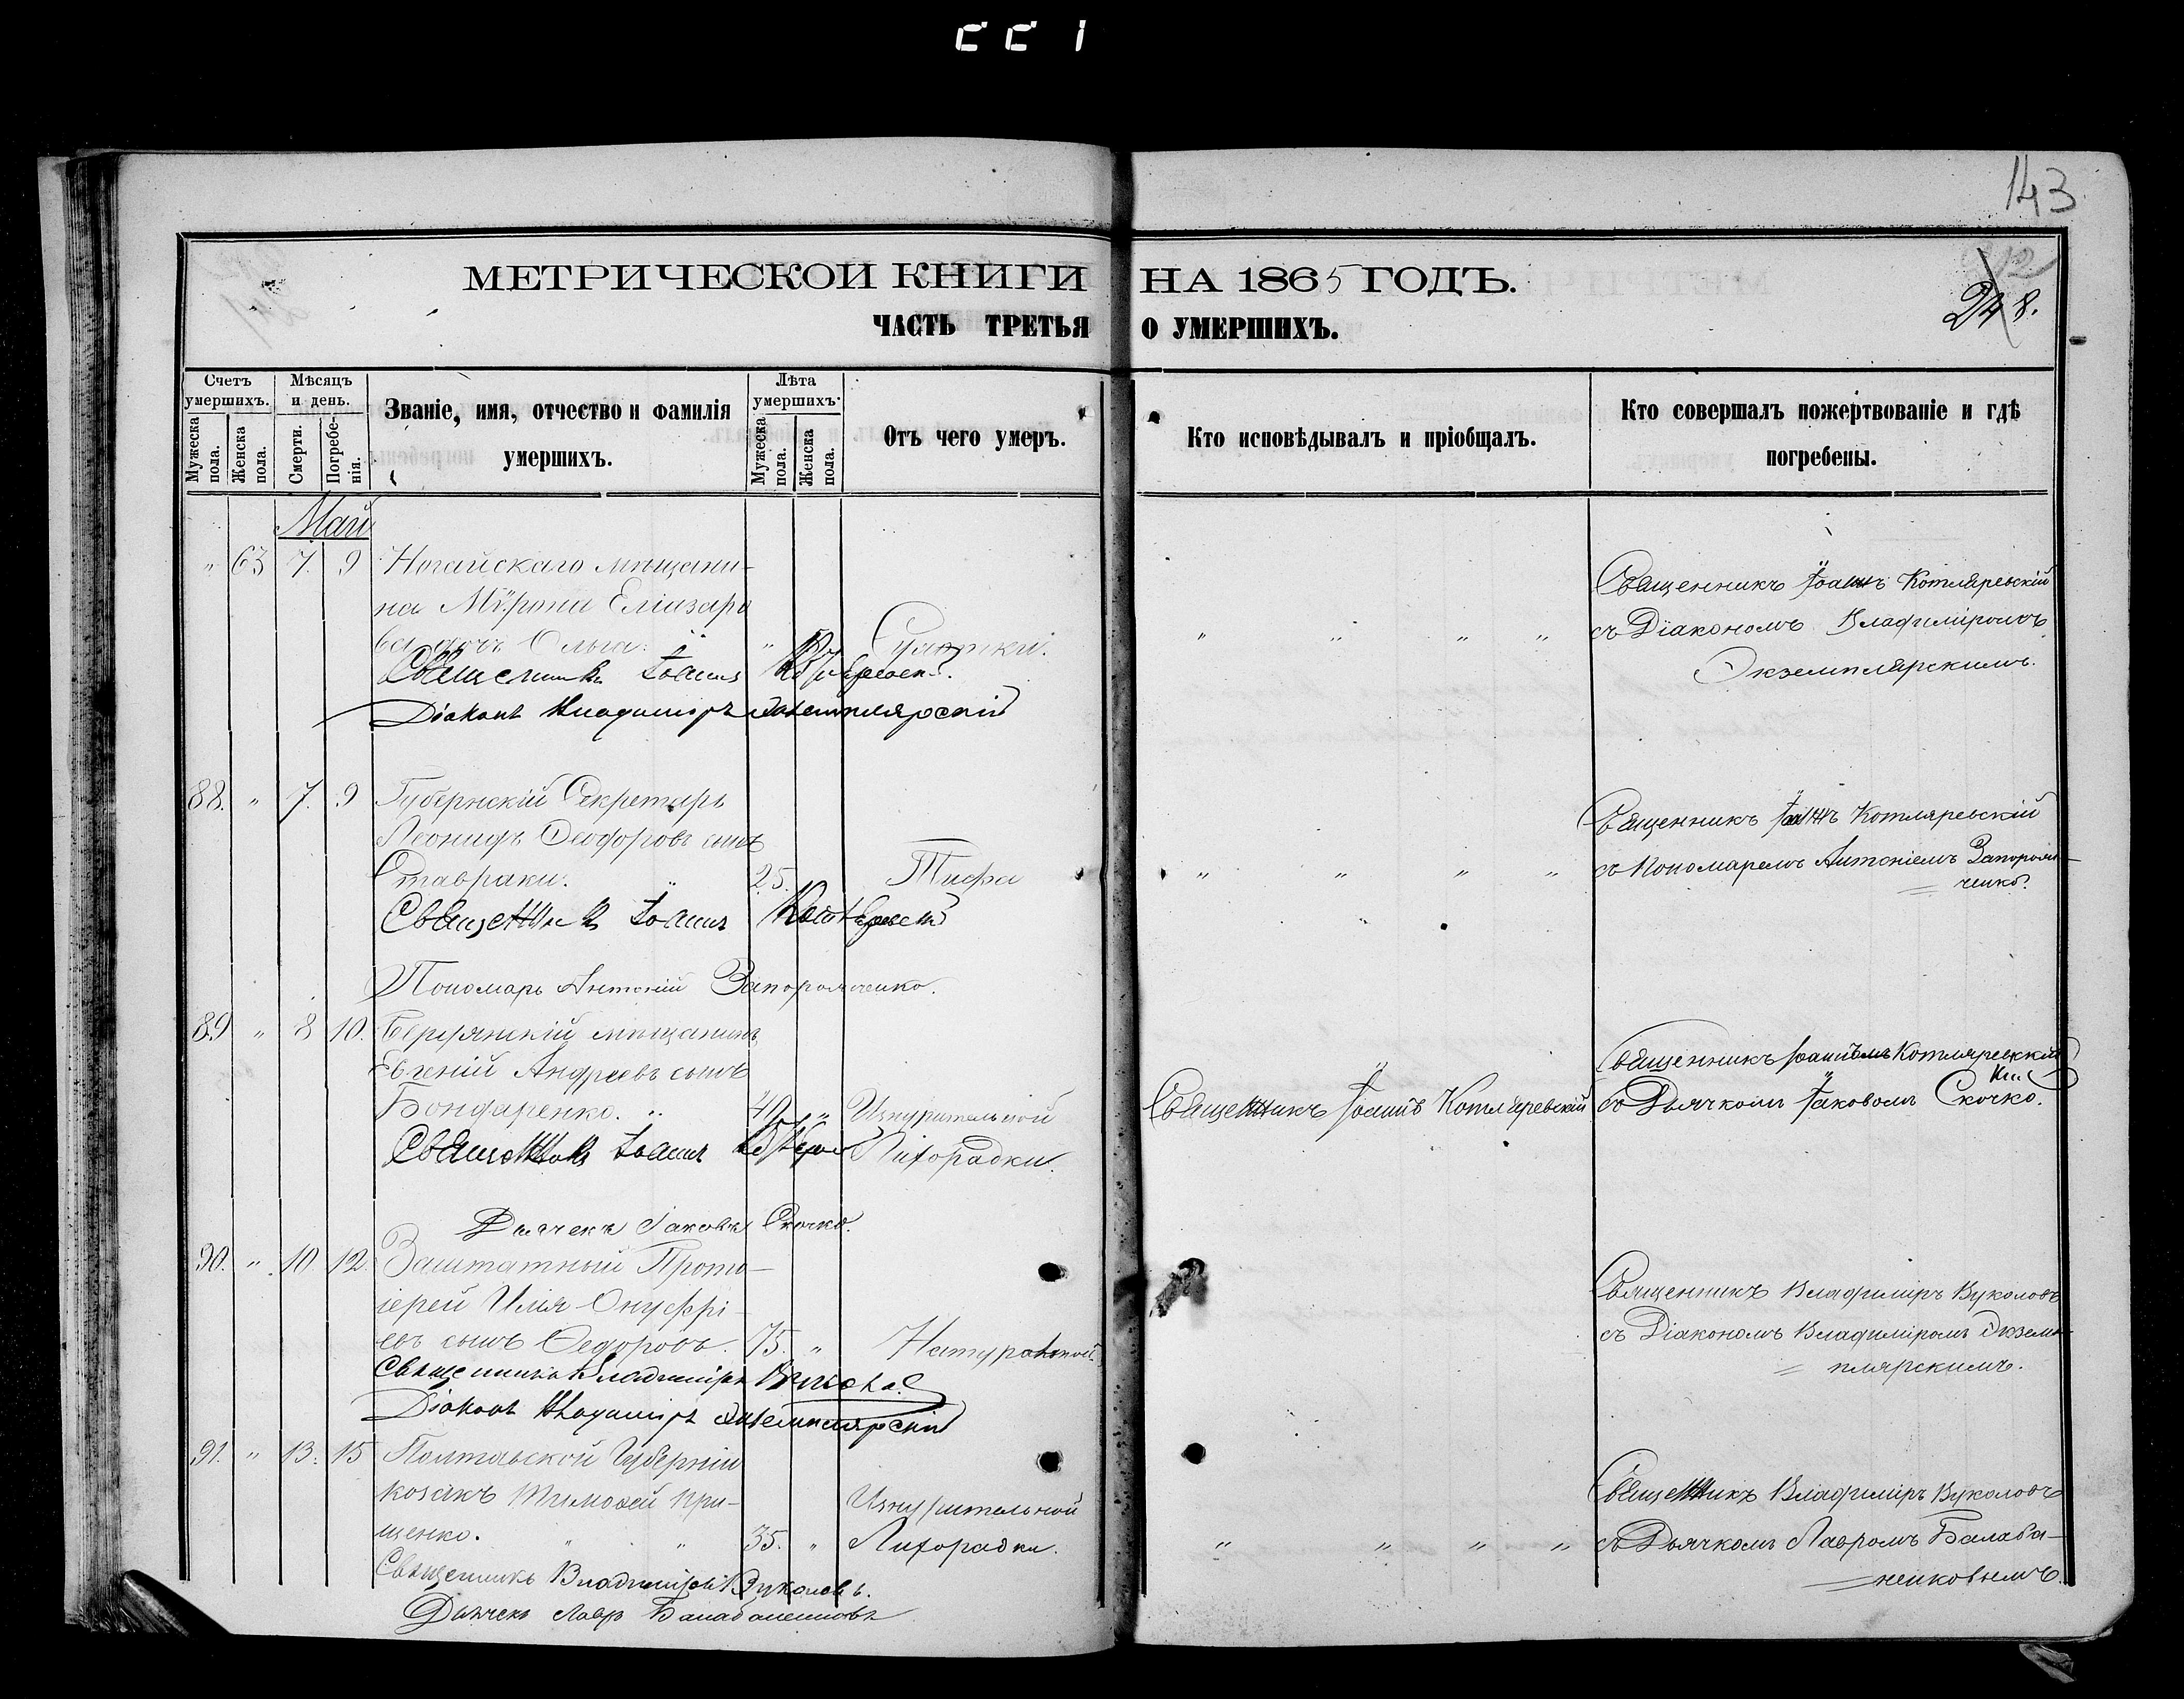 143
МЕТРИЧЕСКОЙ КНИГИ НА 1865 ГОДЪ.
248.
ЧАСТЬ ТРЕТЬЯ О УМЕРШИХЪ.
Счетъ умершихъ.
Мужеска пола.
Женска пола.
Мѣсяцъ и день.
Смерти.
Погребе-нія.
Званіе, имя, отчество и фамилія умершихъ.
Лѣта умершихъ.
Мужеска пола.
Женска пола.
Отъ чего умеръ.
Кто исповѣдывалъ и пріобщалъ.
Кто совершалъ пожертвованіе и гдѣ погребены.
Май
" 63 7. 9 Ногайскаго мѣщани-
на Мѵрона Еліазаро
ва дочь Ольга. "
Священникъ Іоаннъ Котляревскій
съ Діакономъ Владиміромъ
Экземплярскимъ.
Священникъ Іоаннъ Котляревскій
Діаконъ Владиміръ Экземплярскій
88. " 7. 9 Губернскій Секретарь
Леонидъ Ѳеодоровъ сынъ
Ставраки. " 25. Тифа " " " "
Священникъ Іоаннъ Котляревскій
съ Пономаремъ Антоніемъ Запорож-
ченко.
Священникъ Іоаннъ Котляревскій
Пономарь Антоній Запорожченко.
89 " 8 10. Бердянскій мѣщанинъ
Евгеній Андреевъ сынъ
Бондаренко. " " Изнурительной
Лихорадки.
Священникъ Іоаннъ Котляревскій
Священникъ Іоанномъ Котляревским
съ Дьячкомъ Іаковомъ Скочко.
Священникъ Іоаннъ
Дьячекъ Іаковъ Скочко.
90. " 10 12 Заштатный Прото-
іерей Илія Онуфрі-
евъ сынъ Ѳедоровъ. 75. " Натуральной
Священникъ Владиміръ Вуколовъ
съ Діакономъ Владиміромъ Экзем-
плярскимъ.
Священникъ Владиміръ Вуколовъ
Діаконъ Владиміръ Экземплярскій
91. " 13. 15 Полтавской Губерніи
козакъ Тимоѳей Гри-
щенко. " " 35. " Изнурительной
Лихорадки. " " " "
Священникъ Владиміръ Вуколовъ
съ Дьячкомъ Лавромъ Балаба-
ненковымъ.
Священникъ Владиміръ Вуколовъ.
Дьячекъ Лавръ Балабаненковъ